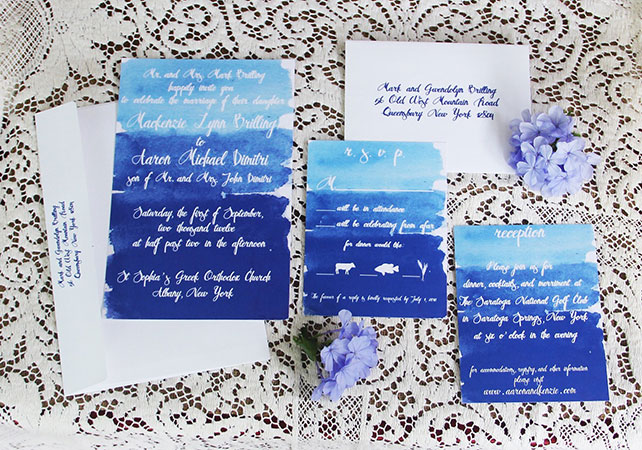 Mr. and Mrs. Mark Brilling
happily invite you
to celebrate the marriage of their daughter
Mackenzie Lynn Brilling
to
Aaron Michael Dimitri
son of Mr. and Mrs. John Dimitri
Saturday, the first of September,
two thousand twelve
at half past two in the afternoon
St Sophia's Greek Orthodox Church
Albany, New York
Mark and Gwendolyn Brilling
Old West Mountain Road
Queensbury New York 12804
r. s. v. p
M
will be in attendance
will be celebrating from afar
for dinner would like
The favour of a reply is kindly requested by July 1, 2012
Mark and Gwendolyn Brilling
Old West Mountain Road
Queensbury New York 12804
reception
Please join us for
dinner, cocktails, and merriment at
The Saratoga National Golf Club
in Saratoga Springs, New York
at six o'clock in the evening
for accommodations, registry, and other information
please visit
www.aaronandkenzie.com